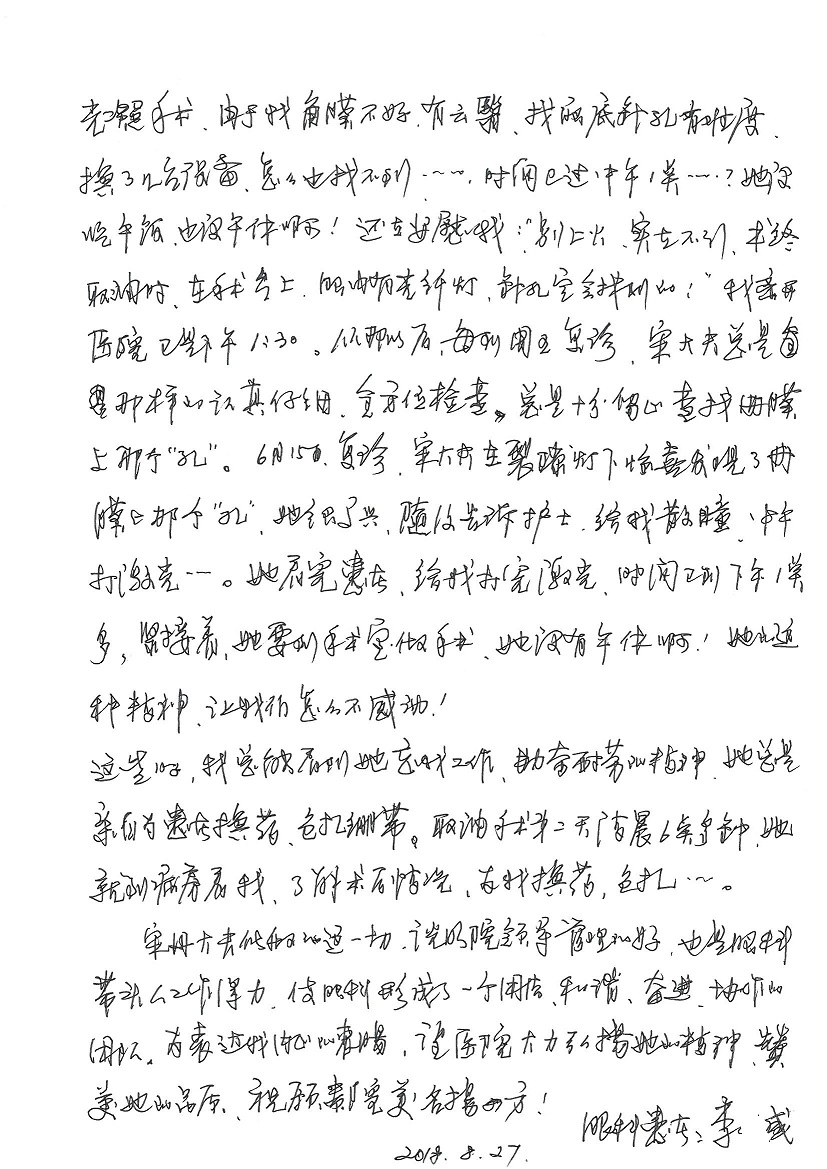 光镜手术、由于我角膜不好、有云翳、找眼底针孔有难度、
换了几台设备、怎么也找不到……、时间已过中午1点……？她没
吃午饭、也没午休啊！还在安慰我：“别上火、实在不行、术终
取油时、在手术台上、眼内有光纤灯、针孔定会找到的！”我离开
医院已是下午1:30。从那以后、每到周五复诊、宋大夫总是
那样的认真仔细、全方位检查。总是十分留心查找网膜
上那个“孔”。6月15日、复诊、宋大夫在裂隙灯下惊喜发现了网
膜上那个“孔”、她很高兴、随后告诉护士、给我散瞳、中午
打激光…。她看完患者、给我打完激光、时间已到下午1点
多，紧接着、她要到手术室做手术、她没有午休啊！她的这
种精神、让我们怎么不感动！
这些时，我总能看到她忘我工作、勤奋耐劳的精神、她总是
亲自为患者换药、包扎绷带。取油手术第二天清晨6点多钟、她
就到病房看我、了解术后情况、为我换药，包扎…。
宋丹大夫所做的这一切、说明院领导管理的好、也是眼科
带头人工作得力、使眼科形成了一个团结、和谐、奋进、协作的
团队。为表达我内心的衷肠，请医院大力弘扬她的精神、赞
美她的品质、祝愿贵院美名扬四方！
眼科患者：李威
2018.8.27.